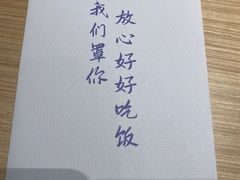 放心好好吃饭
我们罩你